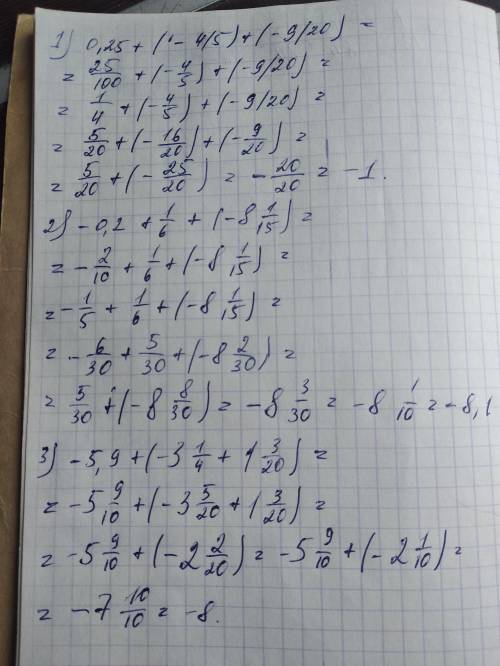 1) 0,25 + (- 4/5) + (- 9/20) =
= 25/100 + (- 4/5) + (- 9/20) =
= 1/4 + (- 4/5) + (- 9/20) =
= 5/20 + (- 16/20) + (- 9/20) =
= 5/20 + (- 25/20) = - 20/20 = - 1.
2) - 0,2 + 1/6 + (- 8 1/15) =
= - 2/10 + 1/6 + (- 8 1/15) =
= - 1/5 + 1/6 + (- 8 1/15) =
= - 6/30 + 5/30 + (- 8 2/30) =
= 5/30 + (- 8 8/30) = - 8 3/30 = - 8 1/10 = - 8,1
3) - 5,9 + (- 3 1/4 + 1 3/20) =
= - 5 9/10 + (- 3 5/20 + 1 3/20) =
= - 5 9/10 + (- 2 2/20) = - 5 9/10 + (- 2 1/10) =
= - 7 10/10 = - 8.